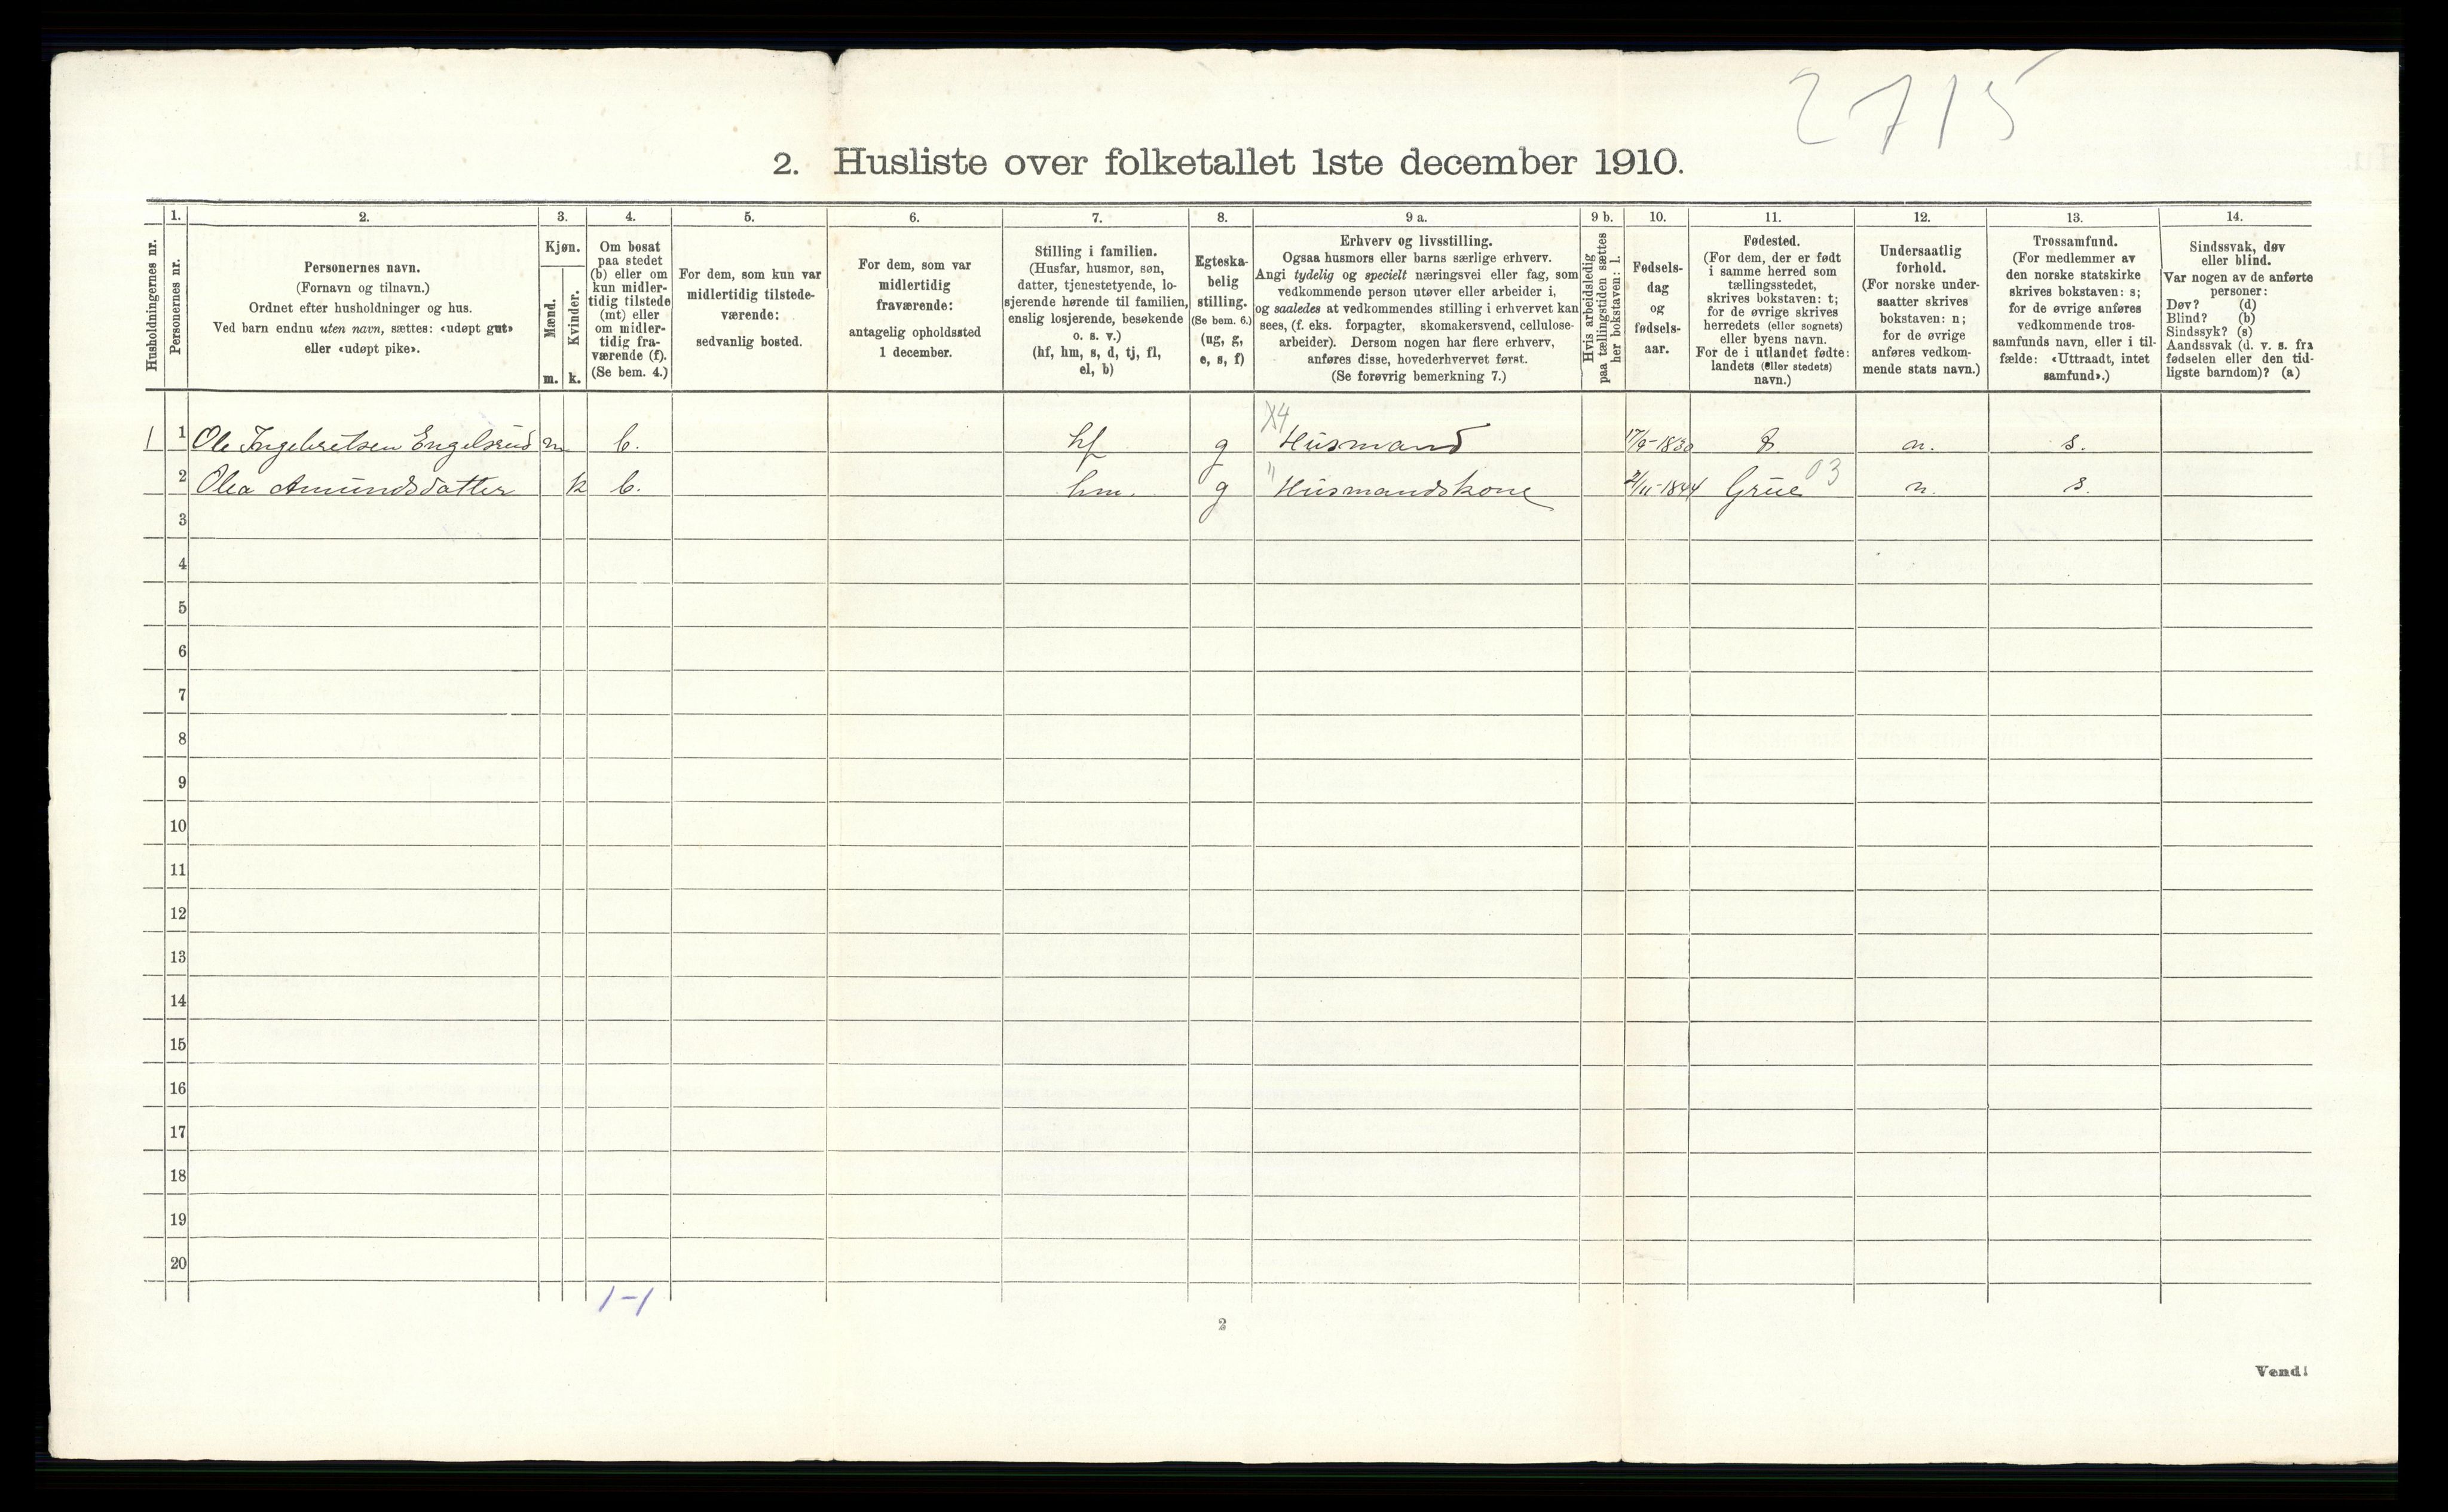 2715
2. Husliste over folketallet 1ste december 1910.
Husholdningernes nr.
1.
Personernes nr.
2.
Personernes navn.
(Fornavn og tilnavn.)
Ordnet efter husholdninger og hus.
Ved barn endnu uten navn, sættes: «udøpt gut»
eller «udøpt pike».
3.
Kjøn.
Mænd.
m.
Kvinder.
k.
4.
Om bosat
paa stedet
(b) eller om
kun midler-
tidig tilstede
(mt) eller
om midler-
tidig fra-
værende (f).
(Se bem. 4.)
5.
For dem, som kun var
midlertidig tilstede-
værende:
sedvanlig bosted.
6.
For dem, som var
midlertidig
fraværende:
antagelig opholdssted
1 december.
7.
Stilling i familien.
(Husfar, husmor, søn,
datter, tjenestetyende, lo-
sjerende hørende til familien,
enslig losjerende, besøkende
o. s. v.)
(hf, hm, s, d, tj, fl,
el, b)
8.
Egteska-
belig
stilling.
(Se bem. 6.)
(ug, g,
e, s, f)
9 a.
Erhverv og livsstilling.
Ogsaa husmors eller barns særlige erhverv.
Angi tydelig og specielt næringsvei eller fag, som
vedkommende person utøver eller arbeider i,
og saaledes at vedkommendes stilling i erhvervet kan
sees, (f. eks. forpagter, skomakersvend, cellulose-
arbeider). Dersom nogen har flere erhverv,
anføres disse, hovederhvervet først.
(Se forøvrig bemerkning 7.)
9 b.
Hvis arbeidsledig
paa tællingstiden sættes
her bokstaven: l.
10.
Fødsels-
dag
og
fødsels-
aar.
11.
Fødested.
(For dem, der er født
i samme herred som
tællingsstedet,
skrives bokstaven: t;
for de øvrige skrives
herredets (eller sognets)
eller byens navn.
For de i utlandet fødte:
landets (eller stedets)
navn.)
12.
Undersaatlig
forhold.
(For norske under-
saatter skrives
bokstaven: n;
for de øvrige
anføres vedkom-
mende stats navn.)
13.
Trossamfund.
(For medlemmer av
den norske statskirke
skrives bokstaven: s;
for de øvrige anføres
vedkommende tros-
samfunds navn, eller i til-
fælde: «Uttraadt, intet
samfund».)
14.
Sindssvak, døv
eller blind.
Var nogen av de anførte
personer:
Døv? (d)
Blind? (b)
Sindssyk? (s)
Aandssvak (d. v. s. fra
fødselen eller den tid-
ligste barndom)? (a)
X4
1 1 Ole Ingebretsen Engelsrud m b. hf g Husmand 17/9-1830 t. n. s.
2 Olea Amundsdatter k b. hm. g " Husmandskone /11-1844 Grue 03 n. s.
3
4
5
6
7
8
9
10
11
12
13
14
15
16
17
18
19
20
1-1
2
Vend!